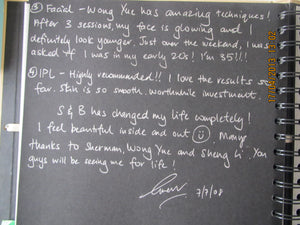 ③ Facial - Wong Yue has amazing techniques!
After 3 sessions my face is glowing and I
definitely look younger. Just over the weekend, I was
asked if I was in my early 20s! I'm 35!!!
④ IPL - Highly recommended!! I love the results so
far. Skin is so smooth. Worthwhile investment.
S & B has changed my life completely!
I feel beautiful inside and out ☺. Many
thanks to Sherman, Wong Yue and Sheng Li. You
guys will be seeing me for life!
7/7/08
2013 13:02